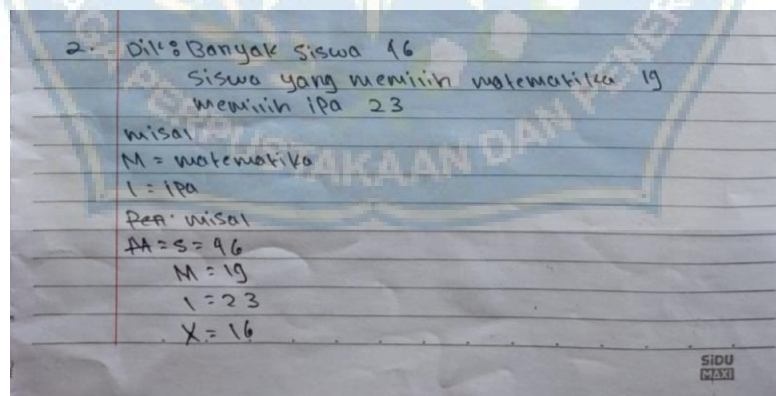 2. Dik: Banyak siswa 46
Siswa yang memilih matematika 19
memilih ipa 23
misal
M = matematika
I = ipa
misal
S = 46
M = 19
I = 23
X = 16
SIDU
MAXI
PERPUSTAKAAN DAN PENER